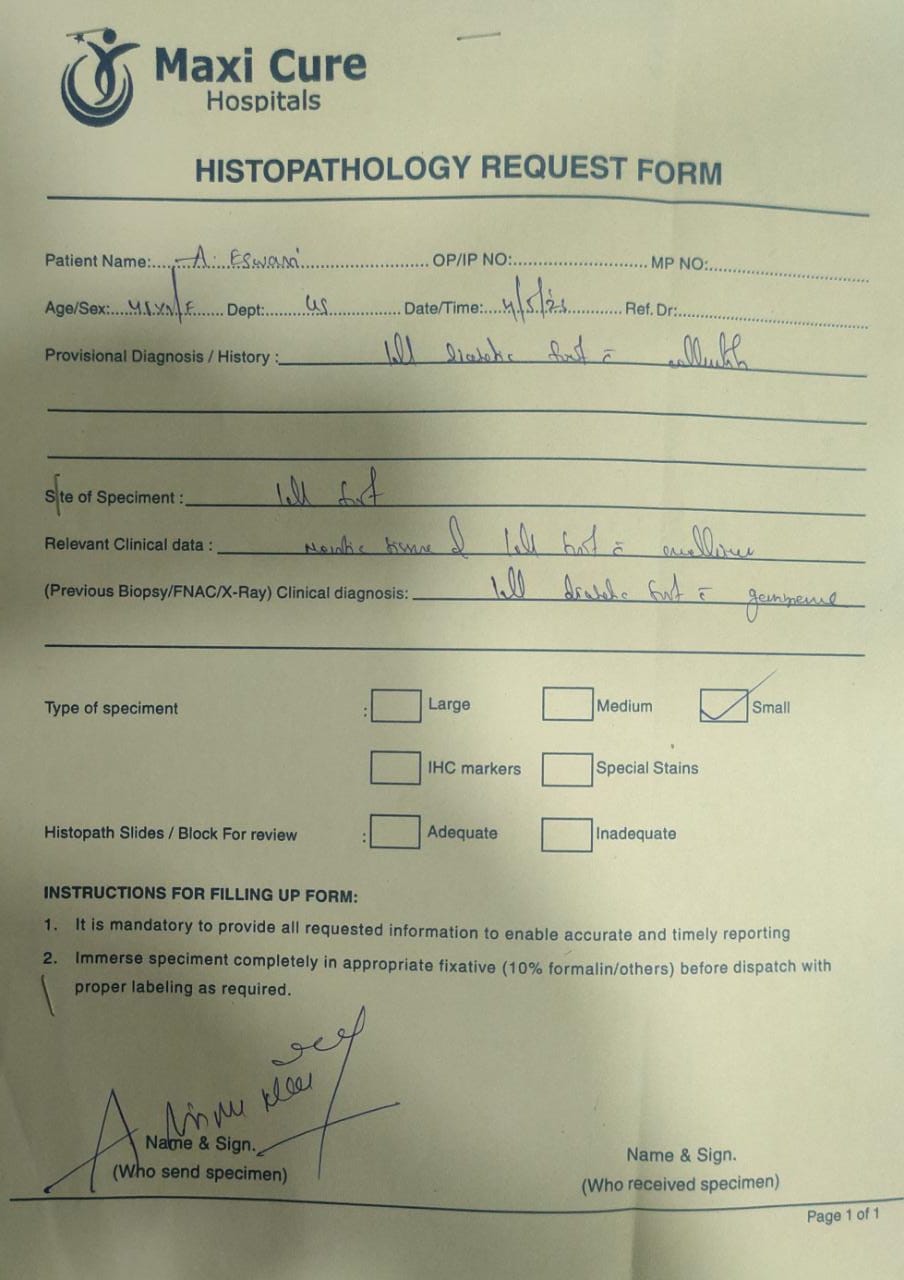 Maxi Cure
Hospitals
HISTOPATHOLOGY REQUEST FORM
Patient Name:.....A. Eswari..................... OP/IP NO:........................... MP NO:................................
Age/Sex:.............. Dept:........................ Date/Time:.............. Ref. Dr:................................
Provisional Diagnosis / History : diabetic foot c̄
Site of Specimen : foot
Relevant Clinical data : tissue of foot c̄
(Previous Biopsy/FNAC/X-Ray) Clinical diagnosis: diabetic foot c̄ gangrene
Type of speciment : Large Medium Small
IHC markers Special Stains
Histopath Slides / Block For review : Adequate Inadequate
INSTRUCTIONS FOR FILLING UP FORM:
1. It is mandatory to provide all requested information to enable accurate and timely reporting
2. Immerse speciment completely in appropriate fixative (10% formalin/others) before dispatch with
proper labeling as required.
Name & Sign.
(Who send specimen)
Name & Sign.
(Who received specimen)
Page 1 of 1